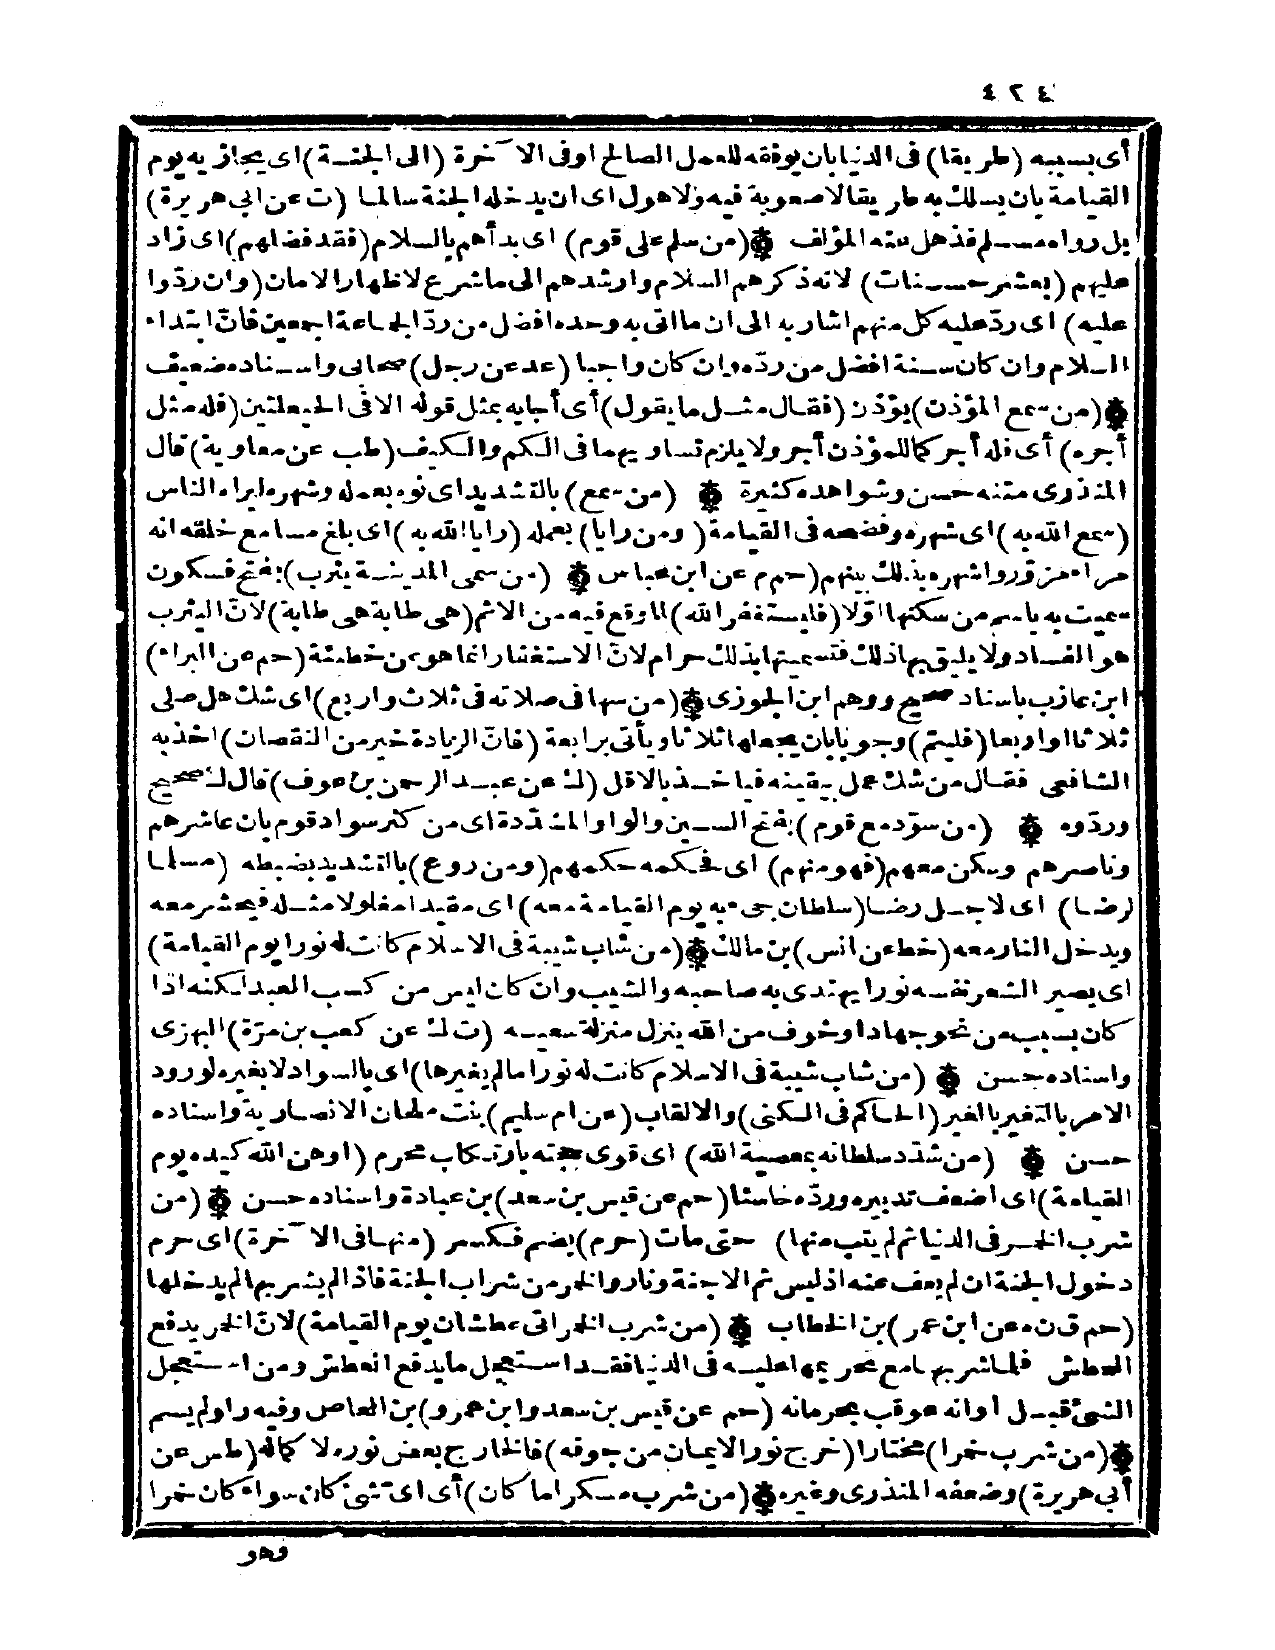 ٤٢٤
أى بسببه (طريقا) فى الدنيا بان يوفقه للعمل الصالح اوفى الآخرة (الى الجنة) اى يجازيه يوم
القيامة بان يسلك به طريقا لا صعوبة فيه ولا هول اى ان يدخله الجنة سالما (ت عن ابى هريرة)
بل رواه مسلم فذهل عنه المؤلف ۞ (من سلم على قوم) اى بدأهم بالسلام (فقد فضلهم) اى زاد
عليهم (بعشر حسنات) لانه ذكرهم السلام وارشدهم الى ماشرع لاظهار الامان (وان ردّوا
عليه) اى ردّ عليه كل منهم اشار به الى ان ما اتى به وحده افضل من ردّ الجماعة اجمعين فانّ ابتداء
السلام وان كان سنة افضل من ردّه وان كان واجبا (عد عن رجل) صحابى واسناده ضعيف
۞ (من سمع المؤذن) يؤذن (فقال مثل ما يقول) أى أجابه بمثل قوله الا فى الحيعلتين (فله مثل
أجره) أى فله أجر كما للمؤذن أجر ولا يلزم تساويهما فى الكم والكيف (طب عن معاوية) قال
المنذرى متنه حسن وشواهده كثيرة ۞ (من سمع) بالتشديد اى نوه بعمله وشهره ليراه الناس
(سمع الله به) اى شهره وفضحه فى القيامة (ومن رايا) بعمله (رايا الله به) اى بلغ مسامع خلقه انه
مراء مزور واشهره بذلك بينهم (حم م عن ابن عباس ۞ (من سمى المدينة يثرب) بفتح فسكون
سميت به باسم من سكنها اوّلا (فليستغفر الله) لما وقع فيه من الاثم (هى طابة هى طابة) لانّ اليثرب
هو الفساد ولا يليق بها ذلك فتسميتها بذلك حرام لانّ الاستغفار انما هو عن خطيئة (حم عن البراء)
ابن عازب باسناد صحيح ووهم ابن الجوزى ۞ (من سها فى صلاته فى ثلاث واربع) اى شك هل صلى
ثلاثا او اربعا (فليتم) وجوبا بان يجعلها ثلاثا ويأتى برابعة (فانّ الزيادة خير من النقصان) اخذ به
الشافعى فقال من شك عمل بيقينه فياخذ بالاقل (ك عن عبد الرحمن بن عوف) قال ك صحيح
وردّوه ۞ (من سوّد مع قوم) بفتح السين والواو المشدّدة اى من كثر سواد قوم بان عاشرهم
وناصرهم وسكن معهم (فهو منهم) اى فحكمه حكمهم (ومن روع) بالتشديد بضبطه (مسلما
لرضا) اى لاجل رضا (سلطان جىء به يوم القيامة معه) اى مقيدا مغلولا مثله فيحشر معه
ويدخل النار معه (خط عن انس) بن مالك ۞ (من شاب شيبة فى الاسلام كانت له نورا يوم القيامة)
اى يصير الشعر نفسه نورا يهتدى به صاحبه والشيب وان كان ليس من كسب العبد لكنه اذا
كان بسبب من نحو جهاد او خوف من الله ينزل منزلة سعيه (ت ك عن كعب بن مرّة) البهزى
واسناده حسن ۞ (من شاب شيبة فى الاسلام كانت له نورا مالم يغيرها) اى بالسواد لا بغيره لورود
الامر بالتغيير بالغير (الحاكم فى الكنى) والالقاب (عن ام سليم) بنت ملحان الانصارية واسناده
حسن ۞ (من شدّد سلطانه بمعصية الله) اى قوى حجته بارتكاب محرم (اوهن الله كيده يوم
القيامة) اى اضعف تدبيره وردّه خاسئا (حم عن قيس بن سعد) بن عبادة واسناده حسن ۞ (من
شرب الخمر فى الدنيا ثم لم يتب منها) حتى مات (حرم) بضم فكسر (منها فى الآخرة) اى حرم
دخول الجنة ان لم يعف عنه اذ ليس ثم الا جنة ونار والخمر من شراب الجنة فاذا لم يشربها لم يدخلها
(حم ق ن ه عن ابن عمر) بن الخطاب ۞ (من شرب الخمر اتى عطشان يوم القيامة) لانّ الخمر يدفع
العطش فلما شربها مع تحريمها عليه فى الدنيا فقد استعجل ما يدفع العطش ومن استعجل
الشئ قبل أوانه عوقب بحرمانه (حم عن قيس بن سعد وابن عمرو) بن العاص وفيه راو لم يسم
۞ (من شرب خمرا) مختارا (خرج نور الايمان من جوفه) فالخارج بعض نوره لا كماله (طس عن
أبى هريرة) وضعفه المنذرى وغيره ۞ (من شرب مسكرا ما كان) أى اى شئ كان سواء كان خمرا
وهو